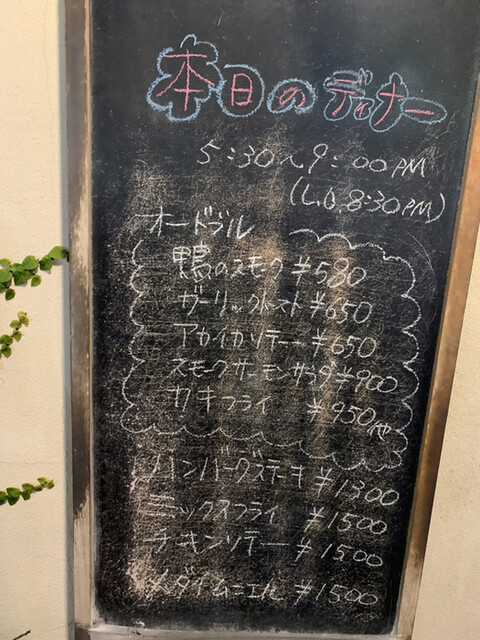 本日のディナー
5:30〜9:00PM
(L.O.8:30PM)
オードブル
鴨のスモーク ¥580
ガーリックトースト ¥650
アカイカソテー ¥650
スモークサーモンサラダ ¥900
カキフライ ¥950 他
ハンバーグステーキ ¥1300
ミックスフライ ¥1500
チキンソテー ¥1500
ダイムニエル ¥1500